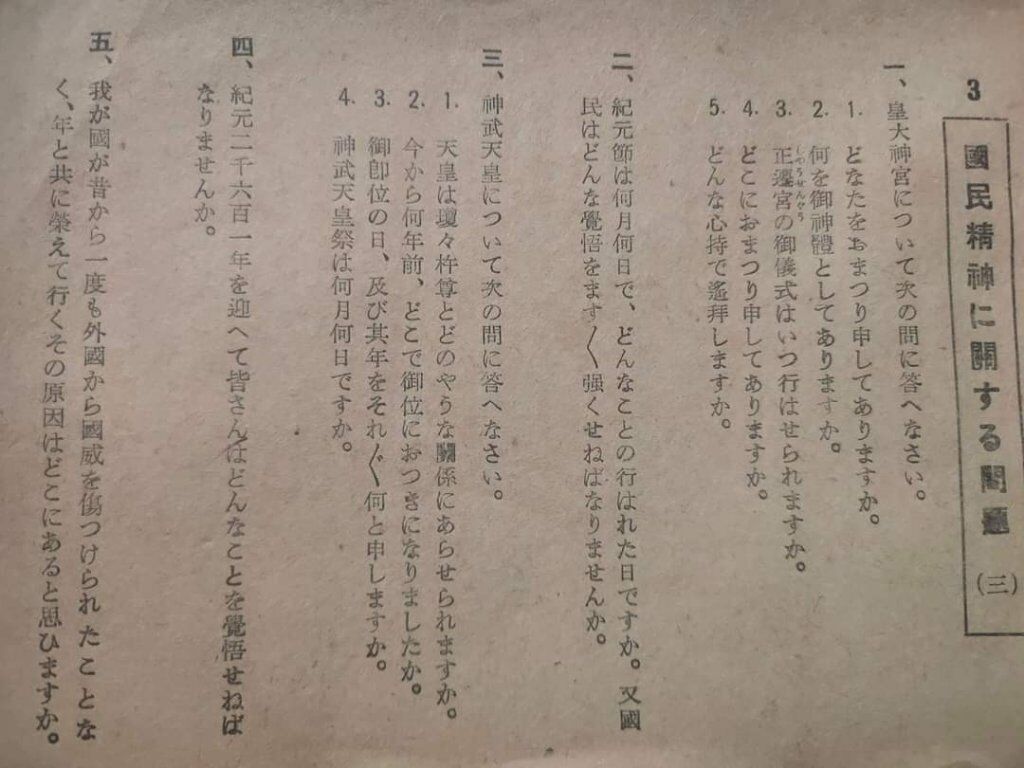 3 國民精神に關する問題 (三)
一、皇大神宮について次の問に答へなさい。
1. どなたをおまつり申してありますか。
2. 何を御神體としてありますか。
3. 正遷宮の御儀式はいつ行はせられますか。
しやうせんぐう
4. どこにおまつり申してありますか。
5. どんな心持で遙拜しますか。
二、紀元節は何月何日で、どんなことの行はれた日ですか。又國
民はどんな覺悟をます〱强くせねばなりませんか。
三、神武天皇について次の問に答へなさい。
1. 天皇は瓊々杵尊とどのやうな關係にあらせられますか。
2. 今から何年前、どこで御位におつきになりましたか。
3. 御卽位の日、及び其年をそれ〲何と申しますか。
4. 神武天皇祭は何月何日ですか。
四、紀元二千六百一年を迎へて皆さんはどんなことを覺悟せねば
なりませんか。
五、我が國が昔から一度も外國から國威を傷つけられたことな
く、年と共に榮えて行くその原因はどこにあると思ひますか。